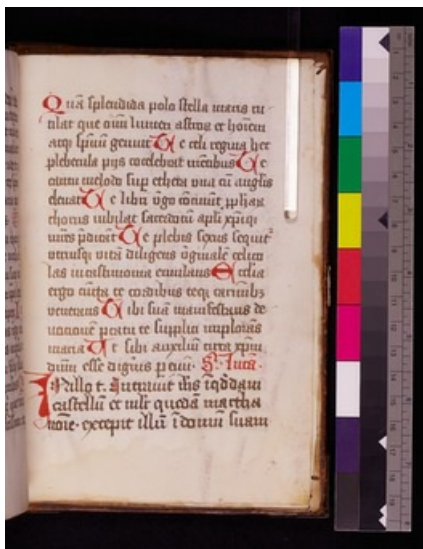 Quā splendida polo stella maris ru
tilat que oīm lumen astroꝝ et hoīem
atqꝫ spūm genuit Te celi regina hec
plebecula pijs cōcelebrat mētibus Te
cantu melodo suꝑ ethera vna cū angelis
eleuat Te libri v̄go cōcinūt ꝓphaꝝ
chorus iubilat sacerdotū apl̄i xp̄iqꝫ
mr̄es p̄dicāt Te plebis sexus sequit᷑
vtriusqꝫ vitā diligens v̄ginalē celico
las in castimonia emulans Ecc̄lia
ergo cūcta te cordibus teqꝫ carmībꝫ
venerans Tibi suā manifestans de
uotionē p̄catu te supplici implorās
maria Ut sibi auxiliū circa xp̄m
dn̄m esse digneris ꝑ euū. S. Lucā.
In illo t. Intrauit ihs ī qd̄dam
castellū et mlr̄ quedā martha
noīe. excepit illū ī domū suam